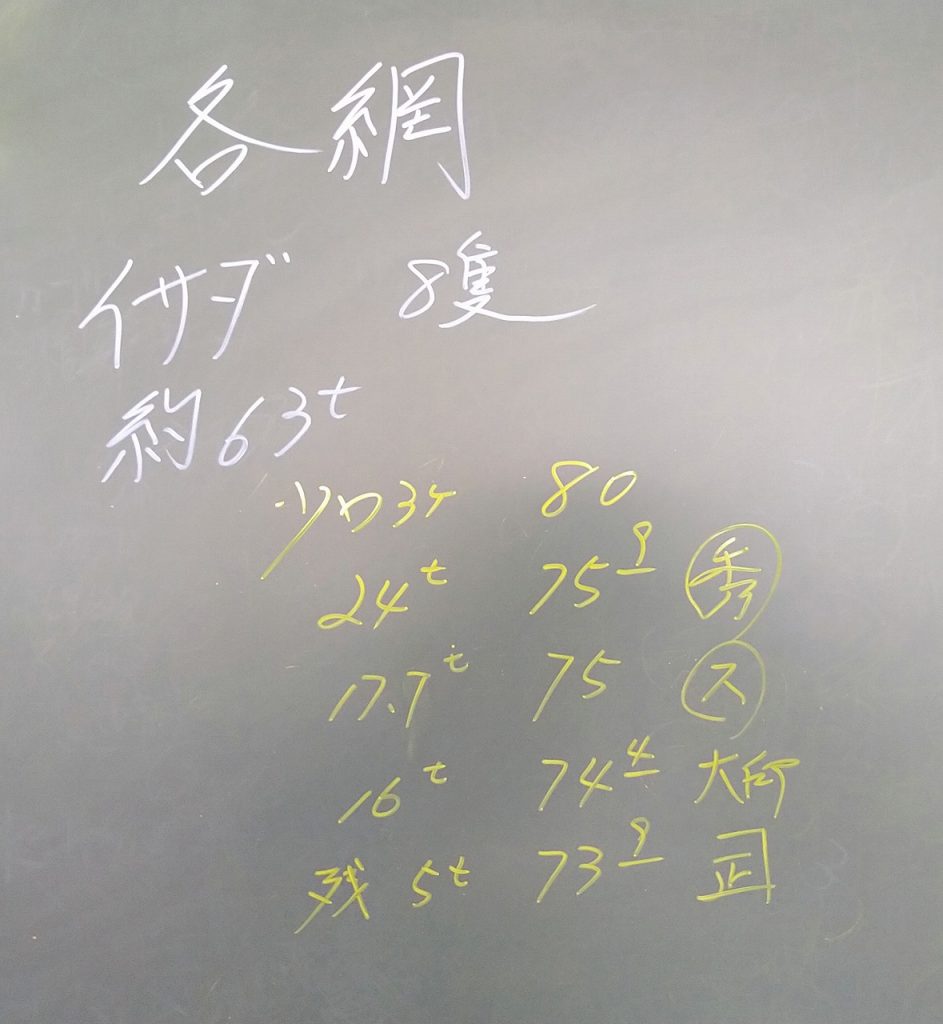 各網
イサダ 8隻
約63t
少口3ケ 80
24t 759 秀
17.7t 75 ス
16t 744 大印
残 5t 739